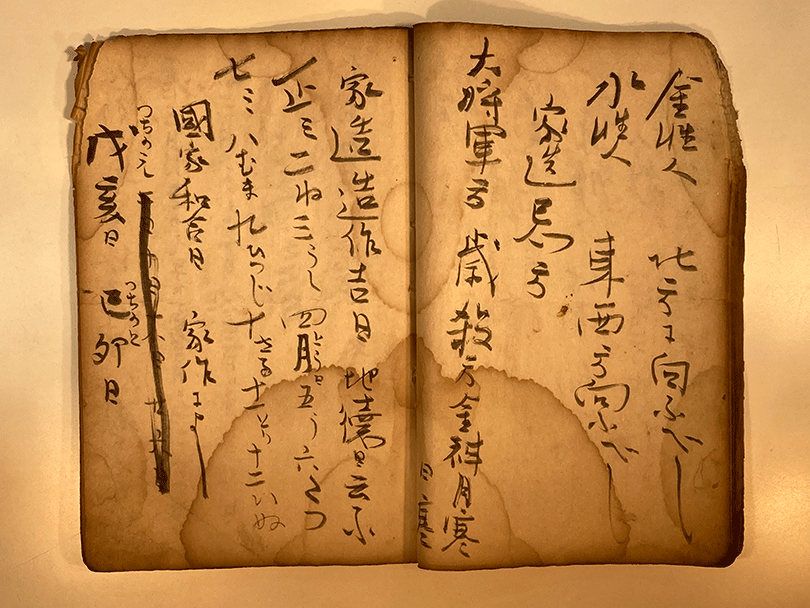 金性人 北方に向ふべし
水性人 東西方向ふべし
家造忌方
大将軍方 歳殺方 金神 月塞
日塞
家造造作吉日 地焼日云ふ
正ミ 二ね 三うし 四月とら日 五う 六たつ
七ミ 八むま 九ひつじ 十さる 十一とり 十二いぬ
國家和合日 家作によし
つちのえ
戊亥日 つちのと 己卯日